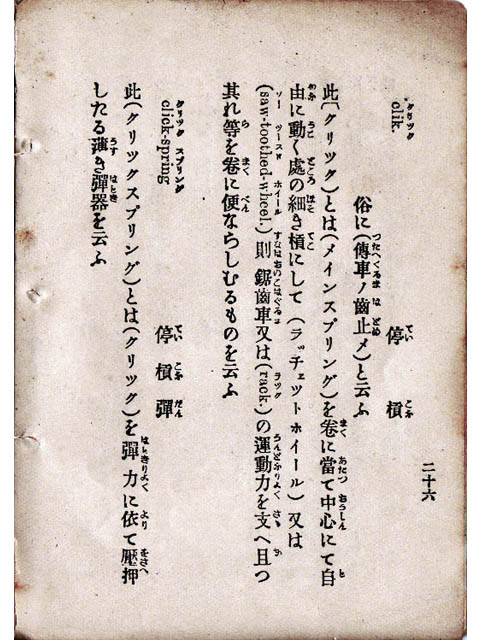 二十六
clik. 停槓
俗に(傳車ノ齒止メ)と云ふ
此[クリック)とは(メインスプリング)を卷に當て中心にて自
由に動く處の細き槓にして(ラッチェットホイール)又は
(saw-toothed-wheel.)則鋸齒車又は(rack.)の運動力を支へ且つ
其れ等を卷に便ならしむるものを云ふ
click-spring 停槓彈
此(クリックスプリング)とは(クリック)を彈力に依て壓押
したる薄き彈器を云ふ